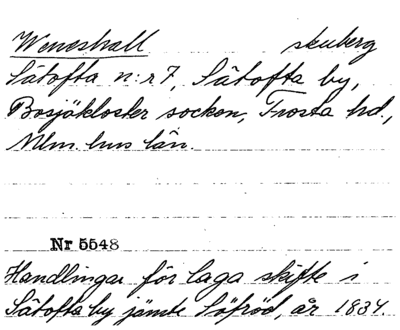 Weneshall skuberg
Sätofta n:r 7, Sätofta by,
Bosjökloster socken, Frosta hd.,
Mlm. hus län.
Nr 5548
Handlingar för laga skifte i
Sätofta by jämte Löfröd, år 1834.